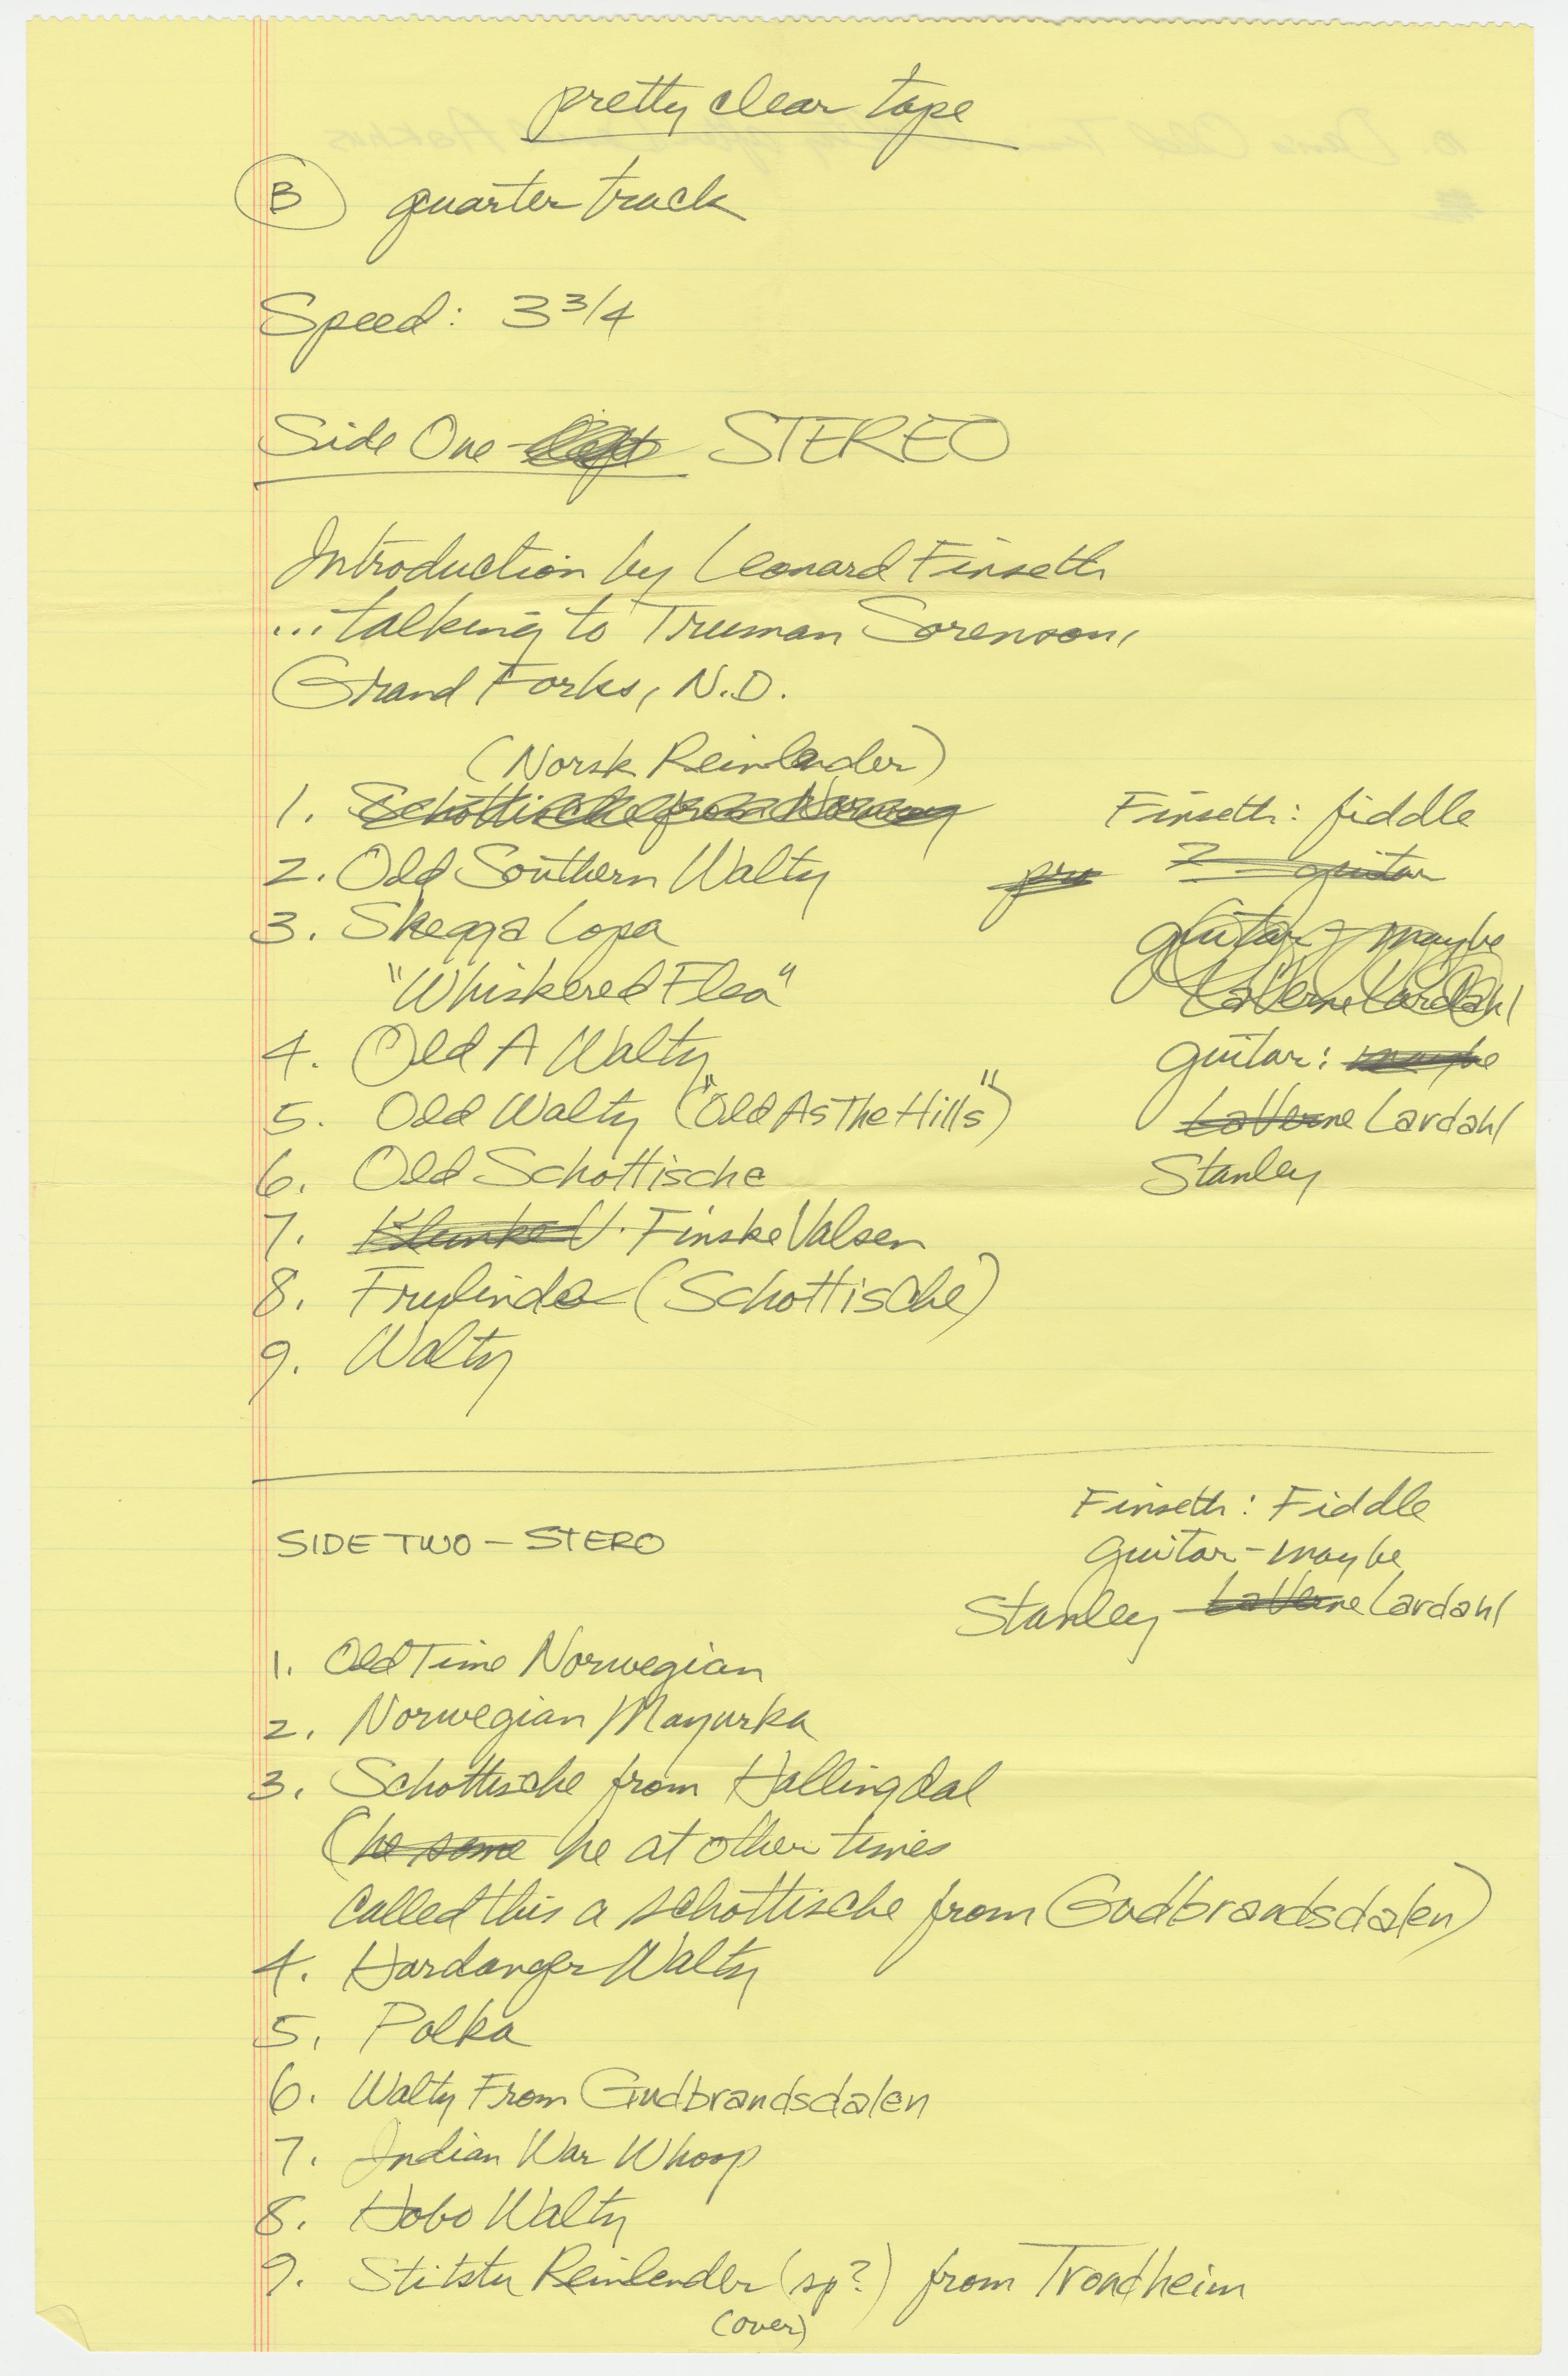 pretty clear tape
B quarter track
Speed: 3 3/4
Side One - STEREO
Introduction by Leonard Finseth
...talking to Truman Sorenson,
Grand Forks, N.D.
(Norsk Reinlender)
1. Schottische from Norway Finseth: fiddle
2. Old Southern Waltz pro ? guitar
3. Skegga Lopa guitar - maybe
"Whiskered Flea" LaVerne Lardahl
4. Old A Waltz guitar: maybe
5. Old Waltz ("Old As The Hills") LaVerne Lardahl
6. Old Schottische Stanley
7. Klunke V. Finske Valsen
8. Frylinda (Schottische)
9. Waltz
Finseth: Fiddle
SIDE TWO - STERO
guitar - maybe
Stanley LaVerne Lardahl
1. Old Time Norwegian
2. Norwegian Mazurka
3. Schottische from Hallingdal
(he some he at other times
called this a schottische from Gudbrandsdalen)
4. Hardanger Waltz
5. Polka
6. Waltz From Gudbrandsdalen
7. Indian War Whoop
8. Hobo Waltz
9. Stitstu Reinlender (sp?) from Trondheim
(over)